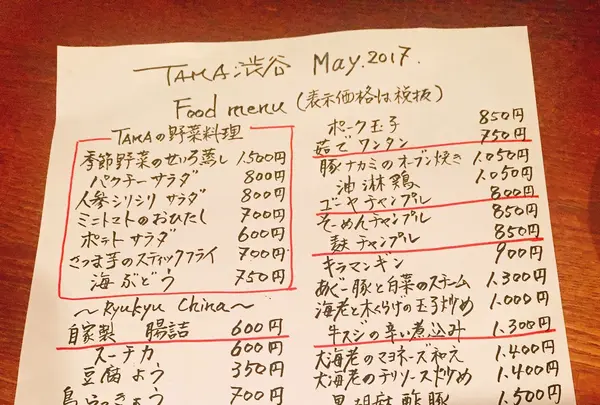 TAMA 渋谷 May. 2017.
Food menu (表示価格は税抜)
TAMAの野菜料理
季節野菜のせいろ蒸し 1,500円
パクチーサラダ 800円
人参シリシリサラダ 800円
ミニトマトのおひたし 700円
ポテトサラダ 600円
さつま芋のスティックフライ 700円
海ぶどう 750円
~Ryukyu China~
自家製 腸詰 600円
スーチカ 600円
豆腐よう 350円
島らっきょう 700円
ポーク玉子 850円
茹でワンタン 750円
豚ナカミのオーブン焼き 1,050円
油淋鶏 1,050円
ゴーヤチャンプル 800円
そーめんチャンプル 850円
麩チャンプル 850円
キラマンギン 900円
あぐー豚と白菜のスチーム 1,300円
海老と木くらげの玉子炒め 1,000円
牛スジの辛い煮込み 1,300円
大海老のマヨネーズ和え 1,400円
大海老のチリソース炒め 1,400円
黒胡麻酢豚 1,500円